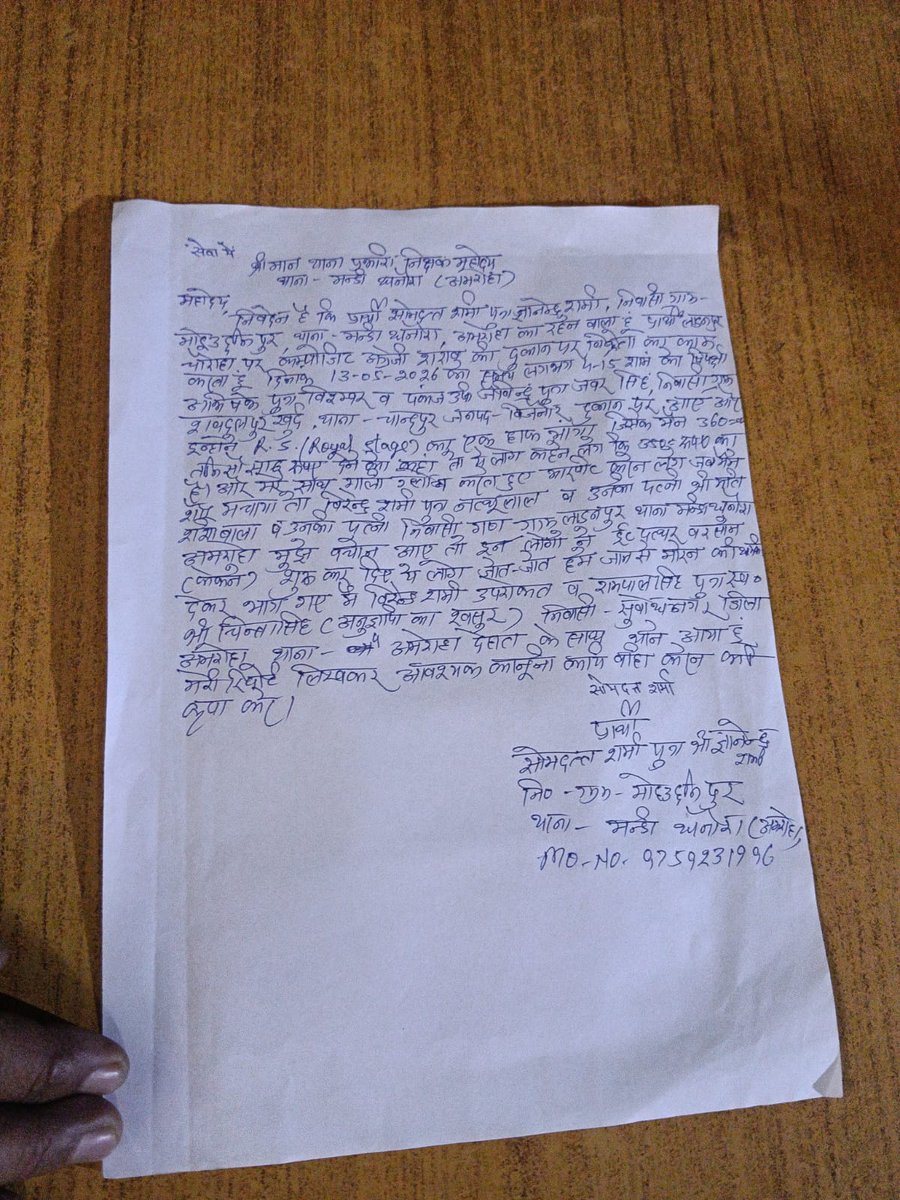 सेवा में
श्रीमान थाना प्रभारी निक्षक महोदय
थाना - मन्डी धनौरा (अमरोहा)
महोदय,
निवेदन है कि प्रार्थी सोमदत्त शर्मा पुत्र ज्ञानेन्द्र शर्मा, निवासी ग्राम-
पुर, थाना - मन्डी धनौरा, अमरोहा का रहने वाला है प्रार्थी
चौराहा पर कम्पोजिट अंग्रेजी शराब की दुकान पर विक्रेता का काम
करता है दिनांक 13-05-2026 को समय लगभग 4-15 शाम को
अभिषेक पुत्र विशम्बर व पंकज उर्फ पुत्र जबर सिंह, निवासी ग्राम
खुर्द थाना - चान्दपुर जनपद - बिजनौर दुकान पर आए और
इन्होने R.S. (Royal Stage) का एक हाफ मांगा जिसके मैने 360=00
तीन सौ साठ रूपए देने को कहा तो ये लोग कहने लगे कि रूपए का
है। और मेरे साथ गाली गलौच करते हुए मारपीट करने लगे जब मैने
शोर मचाया तो विरेन्द्र शर्मा पुत्र नत्थूलाल व उनकी पत्नी श्रीमति
व उनकी पत्नी निवासी गण ग्राम थाना मन्डी धनौरा
अमरोहा मुझे बचाने आए तो इन लोगो ने ईंट पत्थर बरसाने
शुरू कर दिए ये लोग जाते-जाते हमें जान से मारने की धमकी
देकर भाग गए मैं विरेन्द्र शर्मा उपरोक्त व रामपाल सिंह पुत्र स्व०
श्री सिंह (अनुज्ञापी का ससुर) निवासी - जिला
अमरोहा थाना - अमरोहा देहात के साथ थाने आया हूं
मेरी रिपोर्ट लिखकर आवश्यक कानूनी कार्य वाही करने की
कृपा करें।
सोमदत्त शर्मा
प्रार्थी
सोमदत्त शर्मा पुत्र श्री ज्ञानेन्द्र
शर्मा
नि० - ग्राम -
थाना - मन्डी धनौरा (अमरोहा)
MO-NO- 9759231996